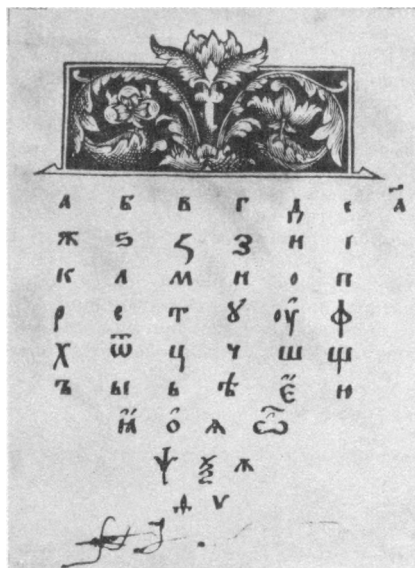 а б в г д є а҃
ж ѕ ꙁ з и і
к л м н о п
р с т ꙋ оу ф
х ѿ ц ч ш щ
ъ ы ь ѣ є ю
ꙗ о ѧ ѽ
ѱ ѯ ѫ
ѵ